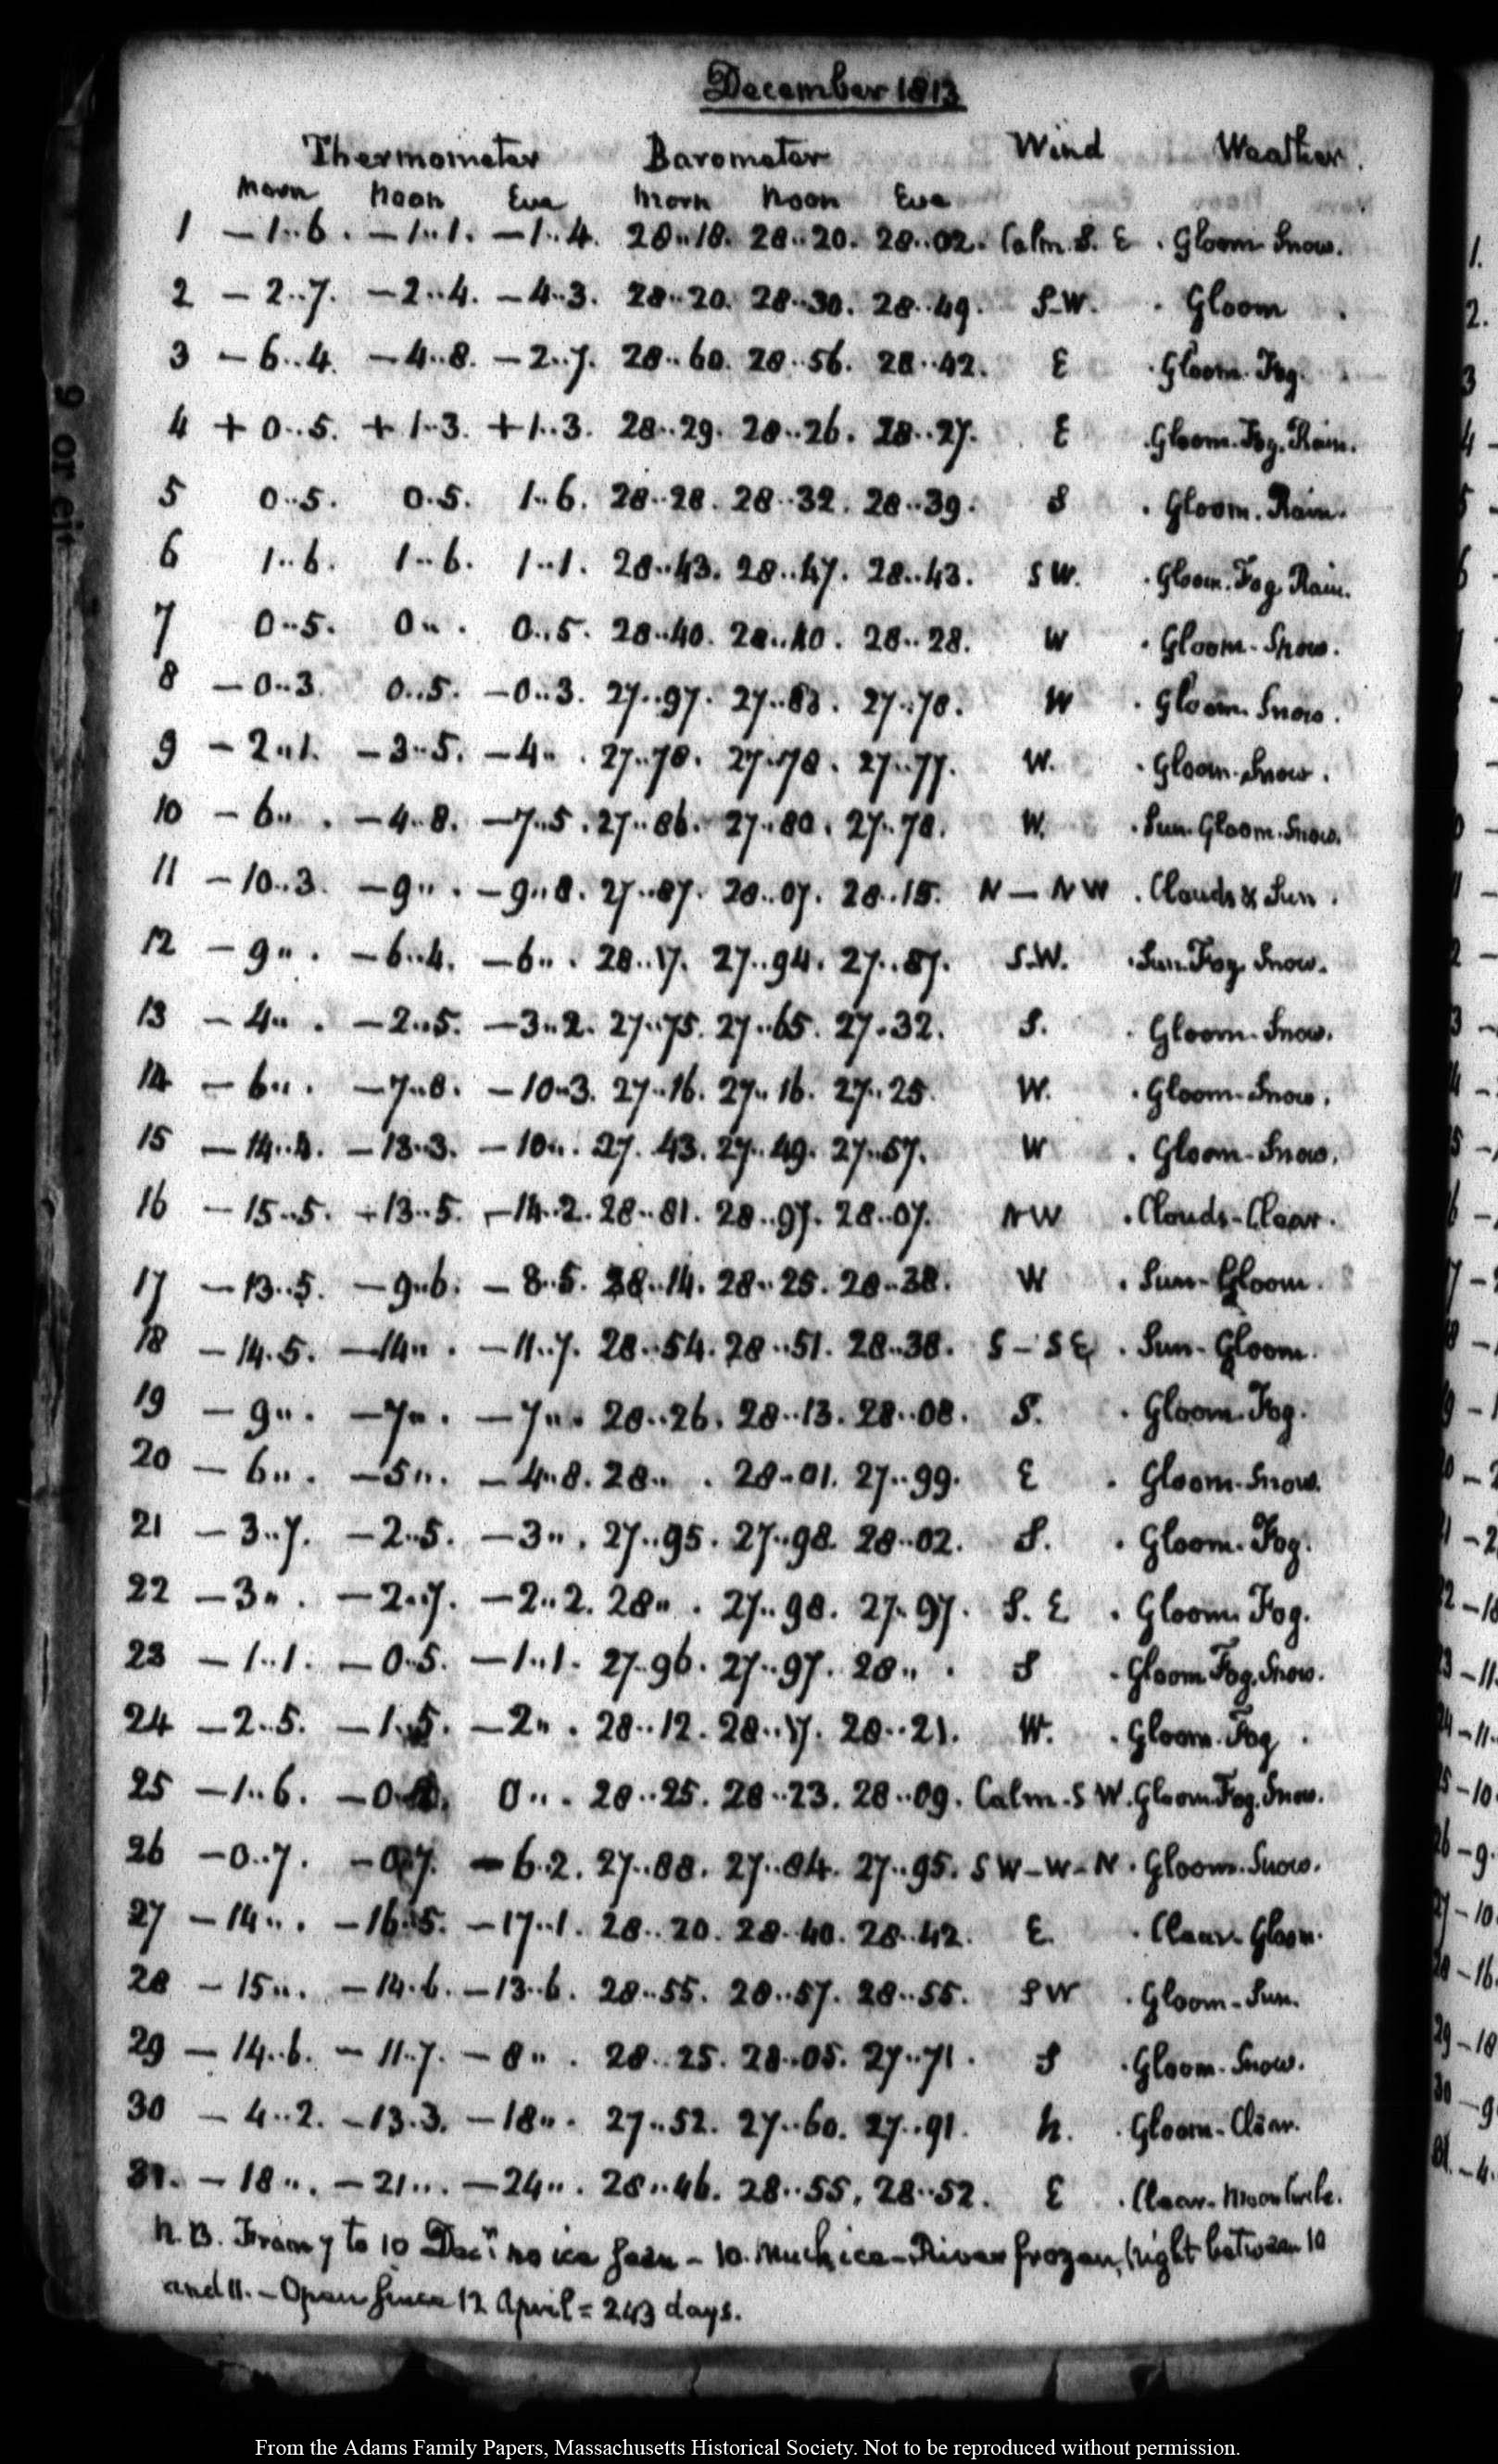 December 1813
Thermometer Barometer Wind Weather.
Morn Noon Eve Morn Noon Eve
1 —1..6. —1..1. —1..4. 28..18. 28..20. 28..02. Calm. S. E. Gloom Snow.
2 —2..7. —2..4. —4..3. 28..20. 28..30. 28..49. S.W. Gloom.
3 —6..4. —4..8. —2..7. 28..60. 28..56. 28..42. E. Gloom. Fog.
4 +0..5. +1..3. +1..3. 28..29. 28..26. 28..27. E. Gloom. Fog. Rain.
5 0..5. 0..5. 1..6. 28..28. 28..32. 28..39. S. Gloom. Rain.
6 1..6. 1..6. 1..1. 28..43. 28..47. 28..43. S W. Gloom. Fog. Rain.
7 0..5. 0... 0..5. 28..40. 28..40. 28..28. W. Gloom. Snow.
8 —0..3. 0..5. —0..3. 27..97. 27..83. 27..78. W. Gloom. Snow.
9 —2..1. —3..5. —4... 27..78. 27..78. 27..77. W. Gloom. Snow.
10 —6... —4..8. —7..5. 27..86. 27..80. 27..78. W. Sun. Gloom. Snow.
11 —10..3. —9... —9..8. 27..87. 28..07. 28..15. N — N W. Clouds & Sun.
12 —9... —6..4. —6... 28..17. 27..94. 27..87. S.W. Sun. Fog. Snow.
13 —4... —2..5. —3..2. 27..75. 27..65. 27..32. S. Gloom. Snow.
14 —6... —7..8. —10..3. 27..16. 27..16. 27..25. W. Gloom. Snow.
15 —14..4. —13..3. —10... 27..43. 27..49. 27..57. W. Gloom. Snow.
16 —15..5. —13..5. —14..2. 28..81. 28..97. 28..07. N W. Clouds - Clear.
17 —13..5. —9..6. —8..5. 28..14. 28..25. 28..38. W. Sun - Gloom.
18 —14..5. —14... —11..7. 28..54. 28..51. 28..38. S — S E. Sun - Gloom.
19 —9... —7... —7... 28..26. 28..13. 28..08. S. Gloom. Fog.
20 —6... —5... —4..8. 28... 28..01. 27..99. E. Gloom. Snow.
21 —3..7. —2..5. —3... 27..95. 27..98. 28..02. S. Gloom. Fog.
22 —3... —2..7. —2..2. 28... 27..98. 27..97. S. E. Gloom. Fog.
23 —1..1. —0..5. —1..1. 27..96. 27..97. 28... S. Gloom Fog. Snow.
24 —2..5. —1..5. —2... 28..12. 28..17. 28..21. W. Gloom. Fog.
25 —1..6. —0.. 0... 28..25. 28..23. 28..09. Calm. S W. Gloom Fog. Snow.
26 —0..7. —0..7. —6..2. 27..88. 27..84. 27..95. S W — W — N. Gloom. Snow.
27 —14... —16..5. —17..1. 28..20. 28..40. 28..42. E. Clear. Gloom.
28 —15... —14..6. —13..6. 28..55. 28..57. 28..55. S W. Gloom - Sun.
29 —14..6. —11..7. —8... 28..25. 28..05. 27..71. S. Gloom. Snow.
30 —4..2. —13..3. —18... 27..52. 27..60. 27..91. N. Gloom - Clear.
31. —18... —21... —24... 28..46. 28..55. 28..52. E. Clear. Moon Circle.
N.B. From 7 to 10 Decr. no ice seen — 10. Much ice — River frozen, (night between 10
and 11. — Open since 12 April = 243 days.
From the Adams Family Papers, Massachusetts Historical Society. Not to be reproduced without permission.